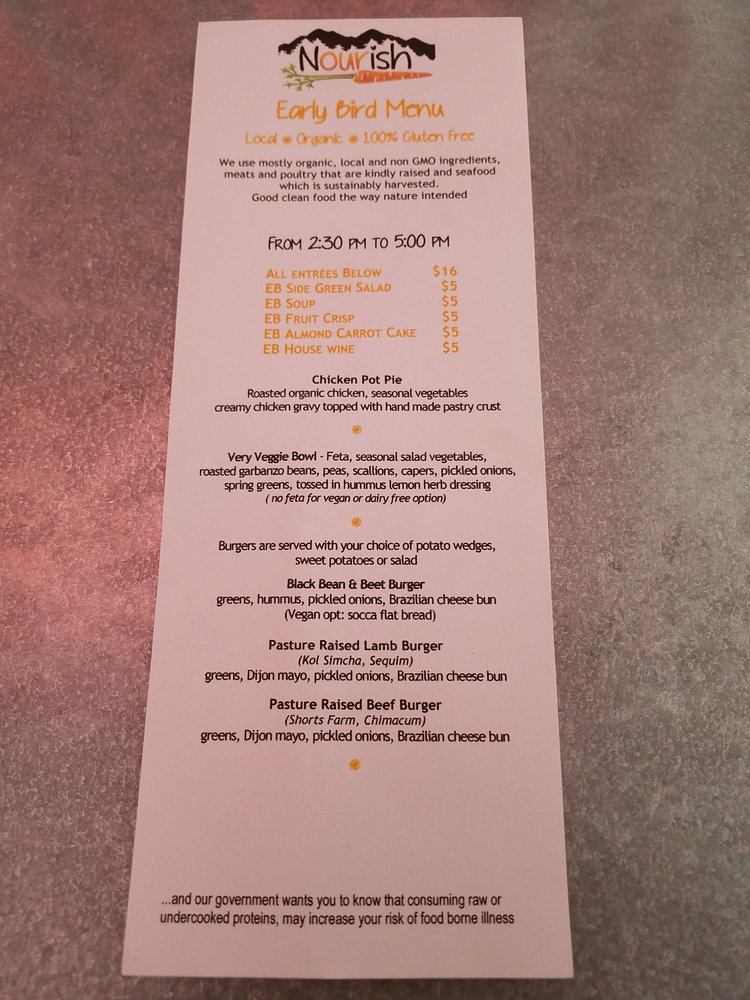 Nourish
Early Bird Menu
Local * Organic * 100% Gluten Free
We use mostly organic, local and non GMO ingredients,
meats and poultry that are kindly raised and seafood
which is sustainably harvested.
Good clean food the way nature intended
FROM 2:30 PM TO 5:00 PM
ALL ENTRÉES BELOW $16
EB SIDE GREEN SALAD $5
EB SOUP $5
EB FRUIT CRISP $5
EB ALMOND CARROT CAKE $5
EB HOUSE WINE $5
Chicken Pot Pie
Roasted organic chicken, seasonal vegetables
creamy chicken gravy topped with hand made pastry crust
Very Veggie Bowl - Feta, seasonal salad vegetables,
roasted garbanzo beans, peas, scallions, capers, pickled onions,
spring greens, tossed in hummus lemon herb dressing
( no feta for vegan or dairy free option)
Burgers are served with your choice of potato wedges,
sweet potatoes or salad
Black Bean & Beet Burger
greens, hummus, pickled onions, Brazilian cheese bun
(Vegan opt: socca flat bread)
Pasture Raised Lamb Burger
(Kol Simcha, Sequim)
greens, Dijon mayo, pickled onions, Brazilian cheese bun
Pasture Raised Beef Burger
(Shorts Farm, Chimacum)
greens, Dijon mayo, pickled onions, Brazilian cheese bun
...and our government wants you to know that consuming raw or
undercooked proteins, may increase your risk of food borne illness